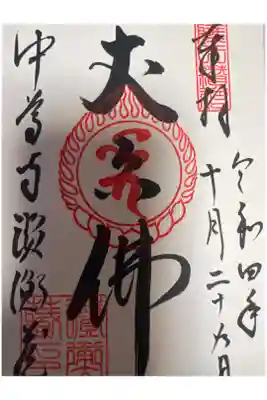 奉拝
令和四年
十月二十九日
丈六佛
中尊寺讃衡蔵